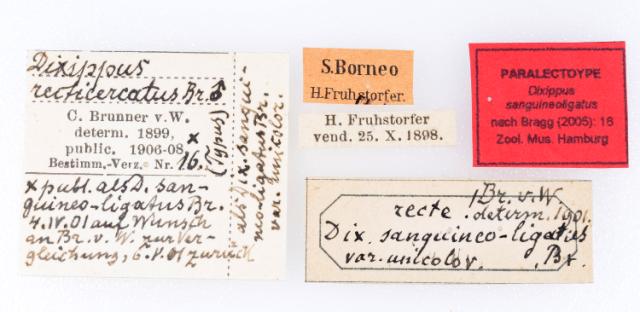 Dixippus
recticercatus Br. ♂
C. Brunner v. W.
determ. 1899,
public. 1906-08 x
Bestimm.-Verz. Nr. 16. (Typus)
x publ. als D. san-
guineo-ligatus Br.
4.IV.01 auf Wunsch
an Br. v. W. zur Ver-
gleichung, 6.V.01 zurück
als Dix. sangui-
neoligatus Br.
var. unicolor.
S.Borneo
H.Fruhstorfer.
H. Fruhstorfer
vend. 25. X. 1898.
PARALECTOYPE
Dixippus
sanguineoligatus
nach Bragg (2005): 16
Zool. Mus. Hamburg
Br. v. W.
recte determ. 1901.
Dix. sanguineo-ligatus
var. unicolor. Br.